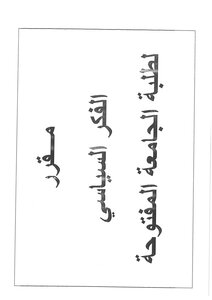 مقرر
الفكر السياسي
لطلبة الجامعة المفتوحة